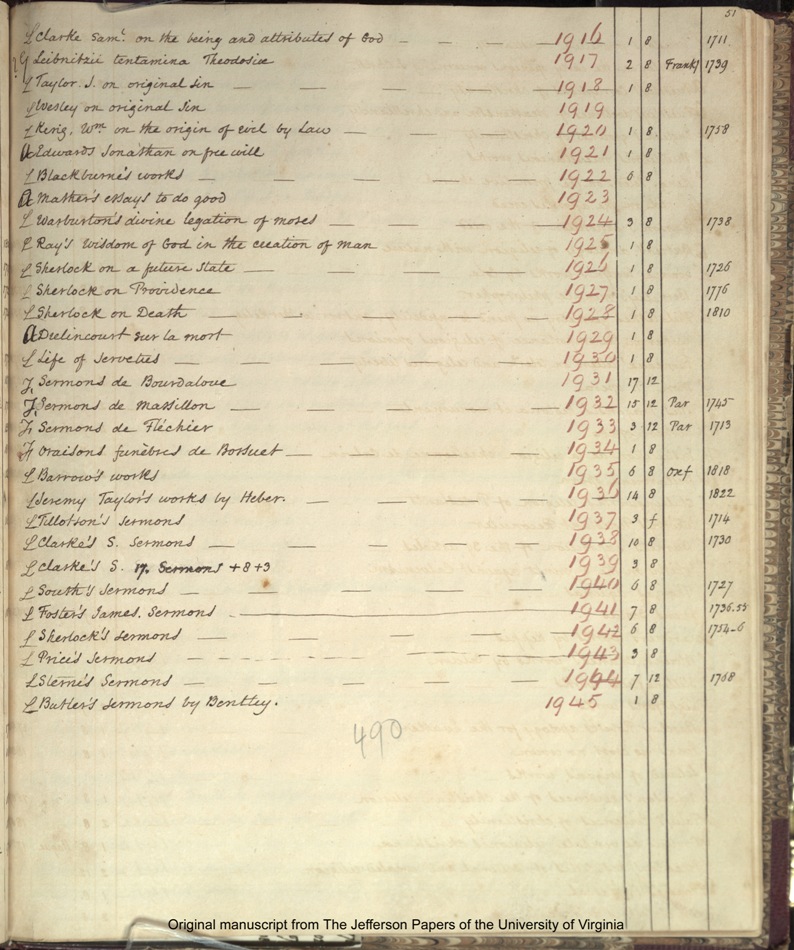 51
L Clarke Saml. on the being and attributes of God — — — — 1916 1 8 1711
? G Leibnitzii tentamina Theodosiae 1917 2 8 Frankf 1739
L Taylor. J. on original sin — — — — — 1918 1 8
L Wesley on original sin 1919
L King, Wm. on the origin of evil by Law — — — — 1920 1 8 1758
A Edwards Jonathan on free will 1921 1 8
L Blackburne's works — — — — — — 1922 6 8
A Mather's essays to do good 1923
L Warburton's divine legation of moses — — — — 1924 3 8 1738
L Ray's Wisdom of God in the creation of man 1925 1 8
L Sherlock on a future State — — — — — 1926 1 8 1726
L Sherlock on Providence 1927 1 8 1776
L Sherlock on Death — — — — — — 1928 1 8 1810
A Drelincourt sur la mort 1929 1 8
L Life of Servetus — — — — — — 1930 1 8
F. Sermons de Bourdaloue 1931 17 12
F. Sermons de Massillon — — — — — 1932 15 12 Par 1745
F. Sermons de Fléchier 1933 3 12 Par 1713
F oraisons funèbres de Bossuet — — — — 1934 1 8
L Barrow's works 1935 6 8 Oxf 1818
L Jeremy Taylor's works by Heber. — — — — 1936 14 8 1822
L Tillotson's sermons 1937 3 f 1714
L Clarke's S. Sermons — — — — — 1938 10 8 1730
L Clarke's S. 17. Sermons +8+3 1939 3 8
L South's sermons — — — — — — 1940 6 8 1727
L Foster's James. Sermons — 1941 7 8 1736.55
L Sherlock's sermons — — — — — 1942 6 8 1754-6
L Price's sermons — — — — — — 1943 3 8
L Sterne's Sermons — — — — — — 1944 7 12 1768
L Butler's sermons by Bentley. 1945 1 8
490
Original manuscript from The Jefferson Papers of the University of Virginia